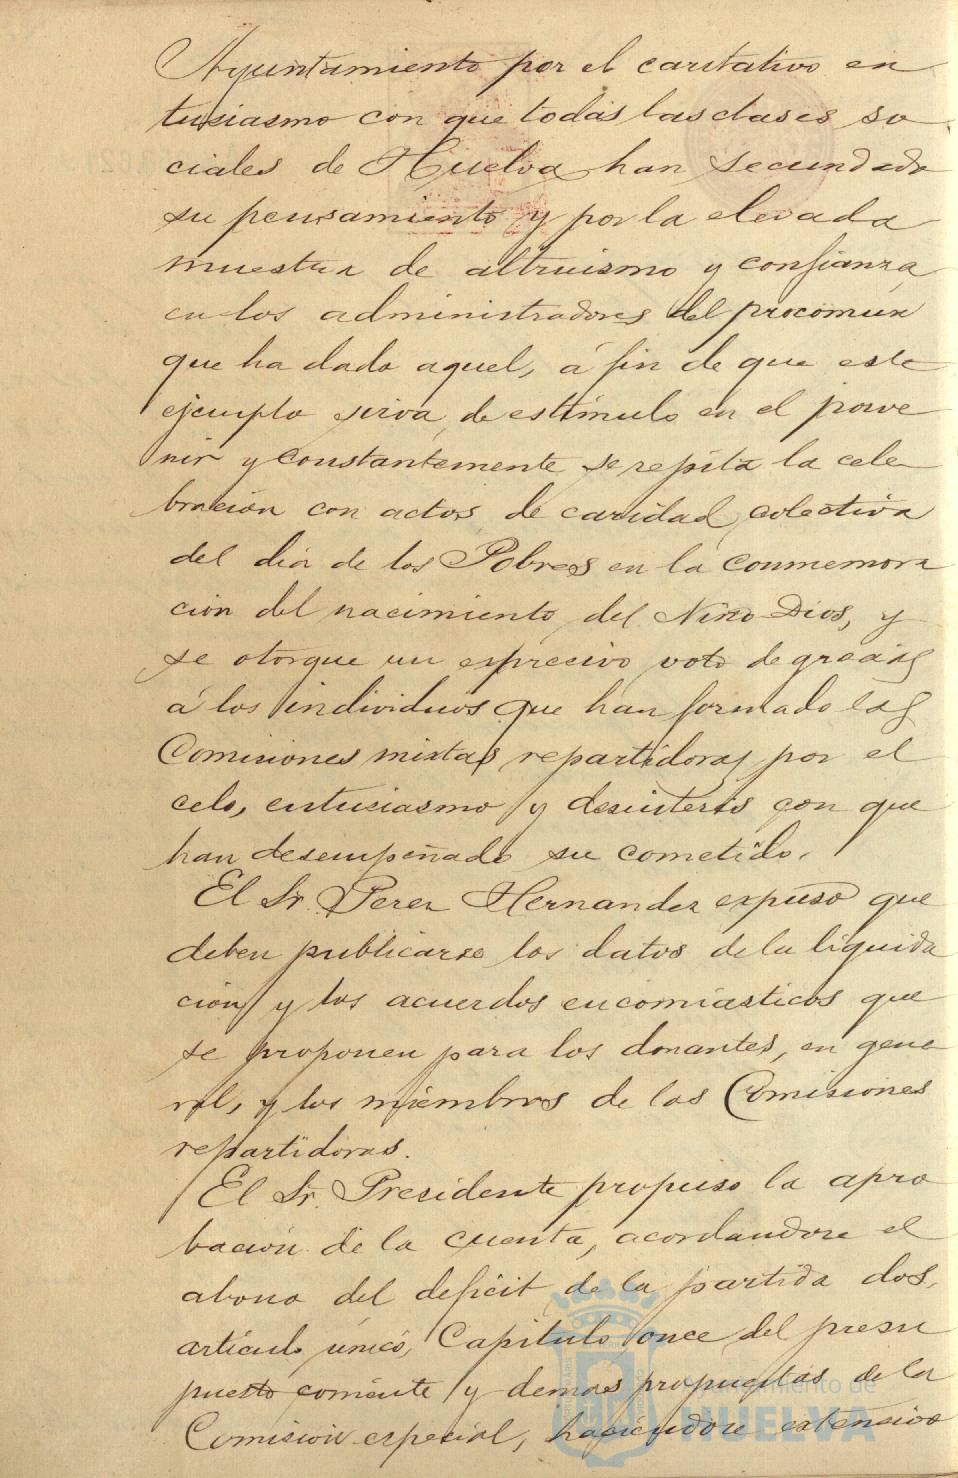 Ayuntamiento por el caritativo en
tusiasmo con que todas las clases so
ciales de Huelva han secundado
su pensamiento y por la elevada
muestra de altruismo y confianza
en los administradores del procomún
que ha dado aquel, á fin de que este
ejemplo sirva de estímulo en el porve
nir y constantemente se repita la cele
bración con actos de caridad colectiva
del día de los Pobres en la conmemora
ción del nacimiento del Niño Dios, y
se otorgue un espresivo voto de gracias
á los individuos que han formado las
Comisiones mixtas repartidoras por el
celo, entusiasmo y desinterés con que
han desempeñado su cometido.
El Sr. Perez Hernandez expuso que
deben publicarse los datos de la liquida
ción y los acuerdos encomiasticos que
se proponen para los donantes, en gene
ral, y los miembros de las Comisiones
repartidoras.
El Sr. Presidente propuso la apro
bación de la cuenta, acordandose el
abono del deficit de la partida dos,
artículo único, Capitulo once del presu
puesto corriente y demas propuestas de la
Comisión especial, haciendose extensivo
Ayuntamiento de
HUELVA